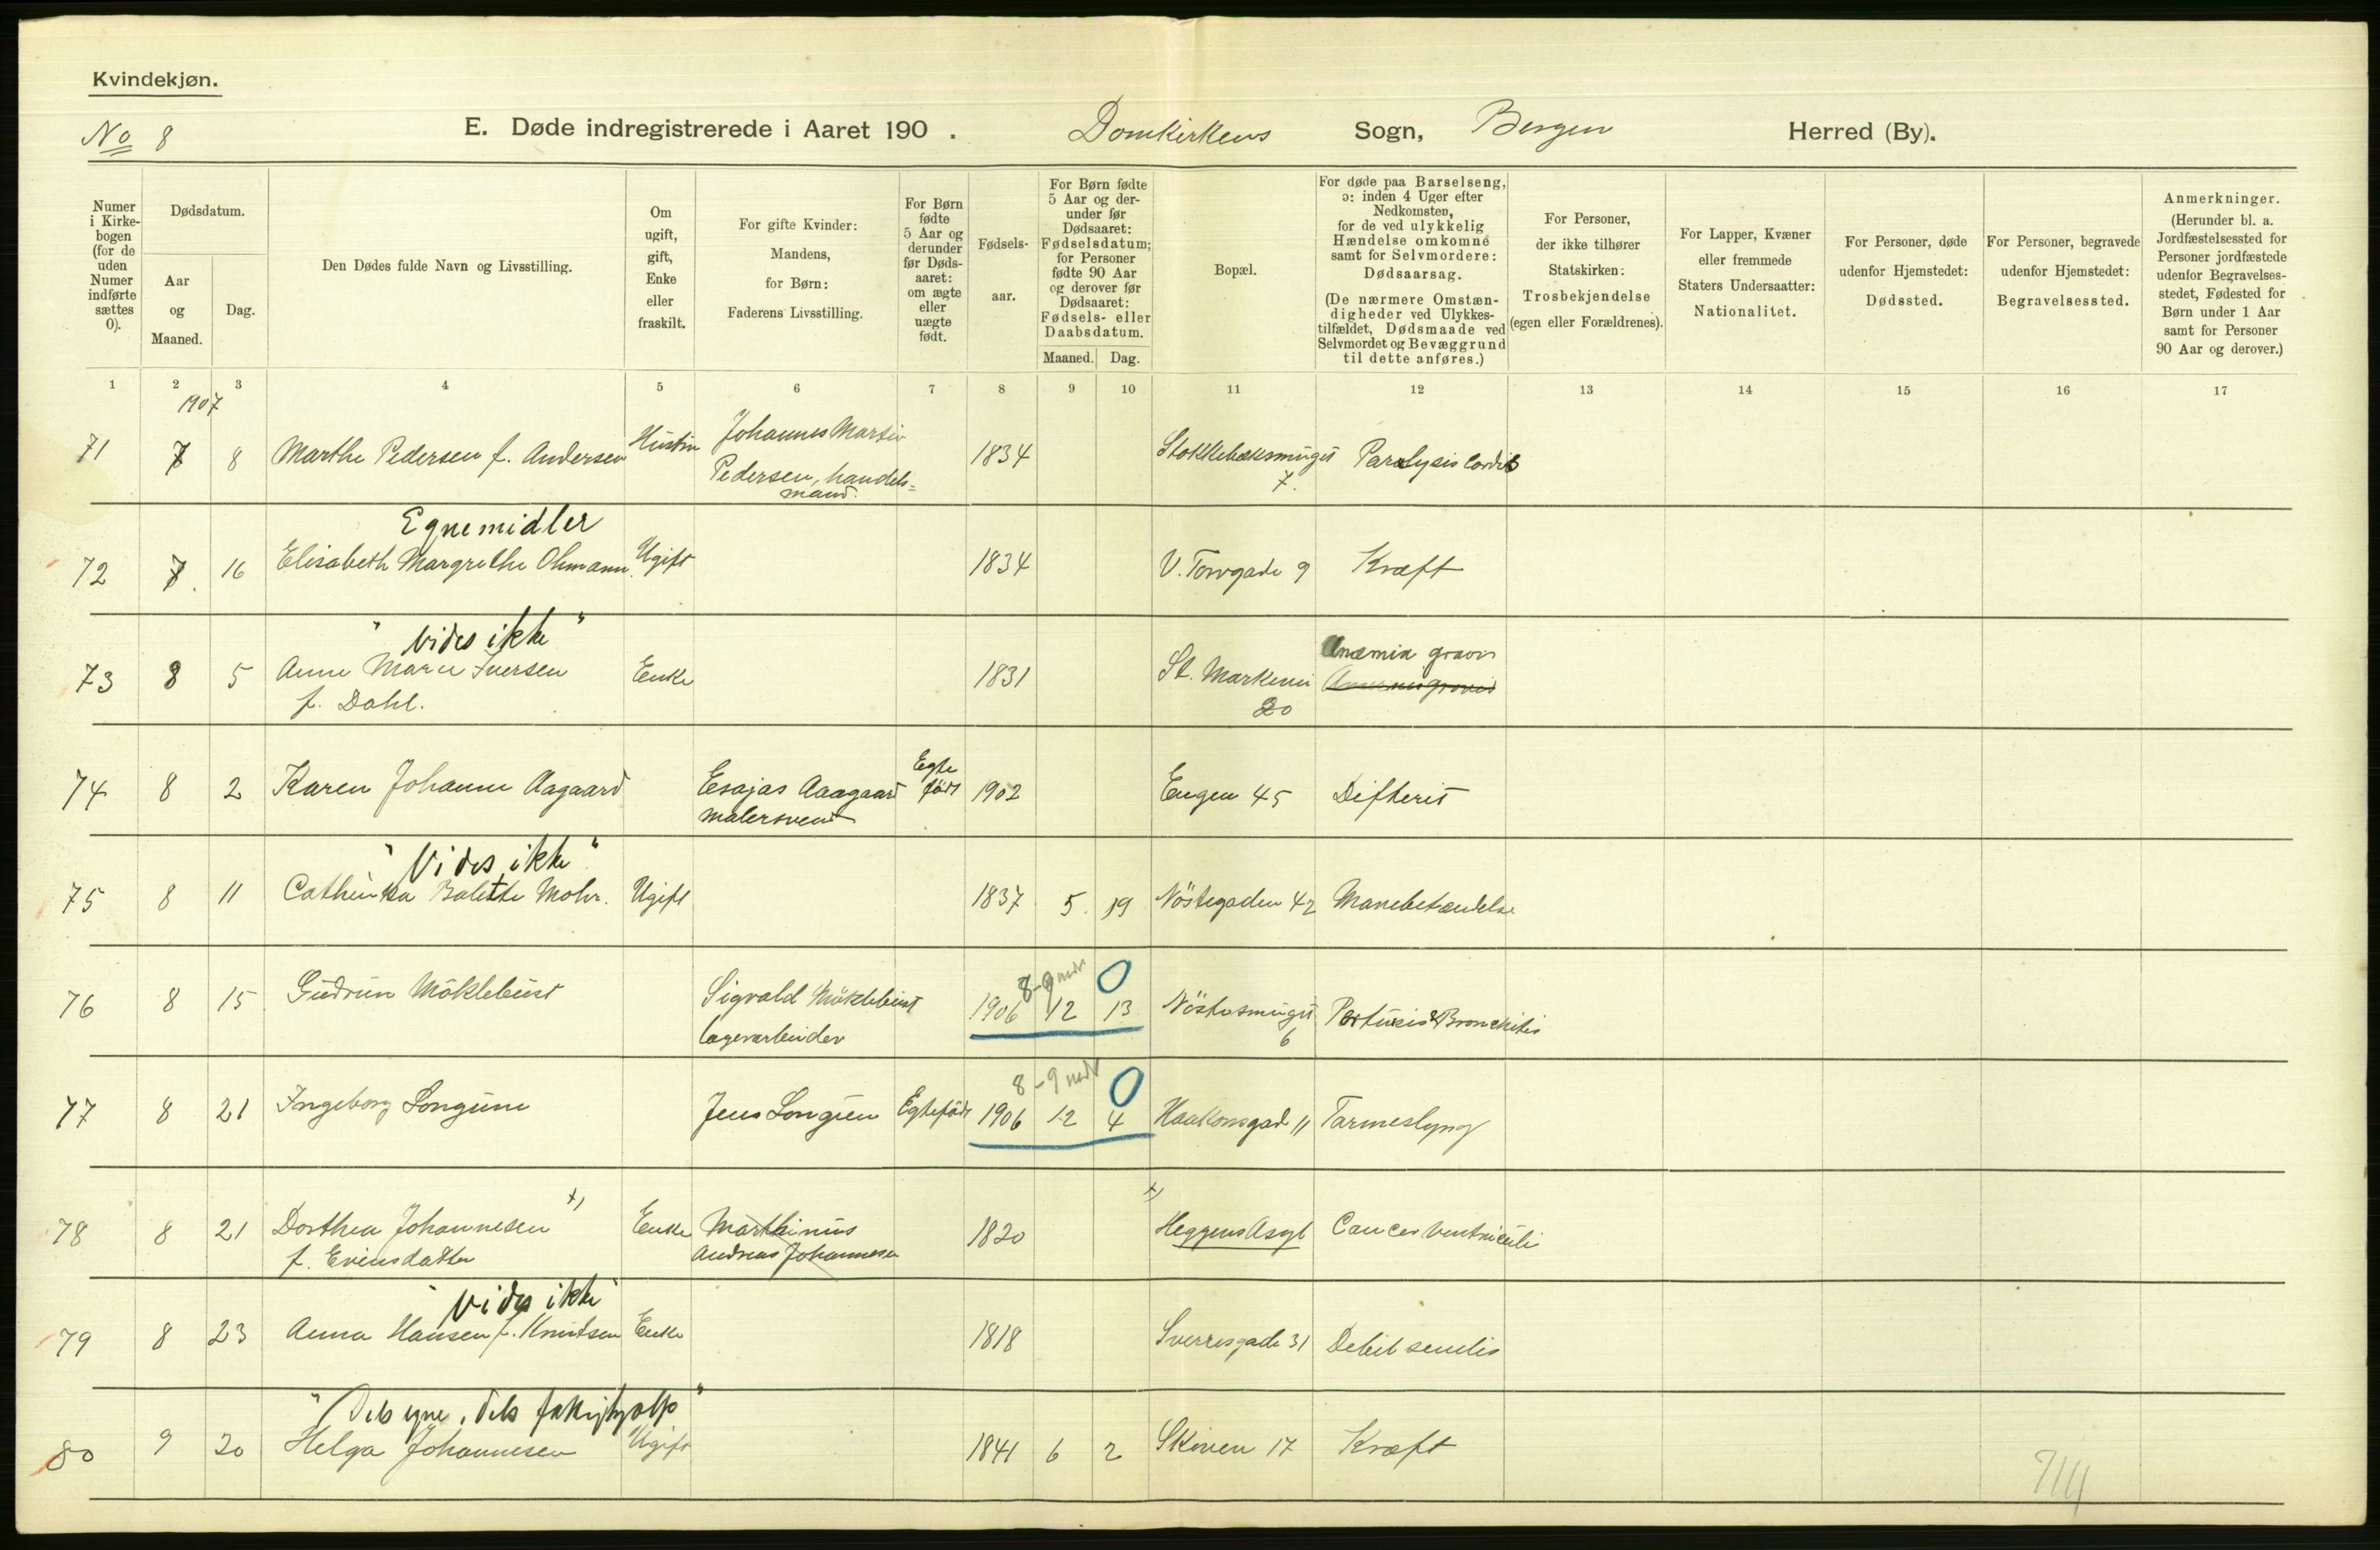 Kvindekjøn.
No 8
E. Døde indregistrerede i Aaret 190 . Domkirkens Sogn, Bergen Herred (By).
Numer i Kirke-
bogen
(for de
uden
Numer
indførte
sættes
0).
Dødsdatum.
Aar
og
Maaned.
Dag.
Den Dødes fulde Navn og Livsstilling.
Om
ugift,
gift,
Enke
eller
fraskilt.
For gifte Kvinder:
Mandens,
for Børn:
Faderens Livsstilling.
For Børn
fødte
5 Aar og
derunder
før Døds-
aaret:
om ægte
eller
uægte
født.
Fødsels-
aar.
For Børn fødte
5 Aar og der-
under før
Dødsaaret:
Fødselsdatum;
for Personer
fødte 90 Aar
og derover før
Dødsaaret:
Fødsels- eller
Daabsdatum.
Maaned. Dag.
Bopæl.
For døde paa Barselseng,
ɔ: inden 4 Uger efter
Nedkomsten,
for de ved ulykkelig
Hændelse omkomne
samt for Selvmordere:
Dødsaarsag.
(De nærmere Omstæn-
digheder ved Ulykkes-
tilfældet, Dødsmaade ved
Selvmordet og Bevæggrund
til dette anføres.)
For Personer,
der ikke tilhører
Statskirken:
Trosbekjendelse
(egen eller Forældrenes).
For Lapper, Kvæner
eller fremmede
Staters Undersaatter:
Nationalitet.
For Personer, døde
udenfor Hjemstedet:
Dødssted.
For Personer, begravede
udenfor Hjemstedet:
Begravelsessted.
Anmerkninger.
(Herunder bl. a.
Jordfæstelsessted for
Personer jordfæstede
udenfor Begravelses-
stedet, Fødested for
Børn under 1 Aar
samt for Personer
90 Aar og derover.)
1 2 3 4 5 6 7 8 9 10 11 12 13 14 15 16 17
1907
71 7 8 Marthe Pedersen f. Andersen Hustru Johannes Martin 1834 Stokkebæksmuget Paralysis cordis
Pedersen, handels= 7.
mand.
Egne midler
72 7. 16 Elisabeth Margrethe Ohmann. Ugift 1834 V. Torvgade 9 Kræft
" Vides ikke "
Anæmia gravis
73 8 5 Anne Marie Iversen Enke 1831 St. Markevei
f. Dahl. 20
Egte
74 8 2 Karen Johanne Aagaard Esajas Aaagaard født 1902 Engen 45 Difterit
malersvend
" Vides ikke "
75 8 11 Cathinka Bolette Mohr. Ugift 1837 5. 19 Nöstegaden 42 Mavebetændelse
8-9 mdr 0
76 8 15 Gudrun Möklebust Sigvald Möklebust 1906 12 13 Nöstesmuget Pertussis & Bronchitis
lagerarbeider 6
8-9 mdr 0
77 8 21 Ingeborg Longum Jens Longum Egtefödt 1906 12 4 Haakonsgad 11 Tarmeslyng
x) x)
78 8 21 Dorthea Johannesen Enke Marthinius 1820 Heggens Asyl Cancer ventriculi
f. Evensdatter Andreas Johannesen
Vides ikke
79 8 23 Anna Hansen f. Knutsen Enke 1818 Sverresgade 31 Debil senilis
" Dels egne, dels fattighjælp "
80 9 20 Helga Johannesen Ugift 1841 6 2 Skiven 17 Kræft